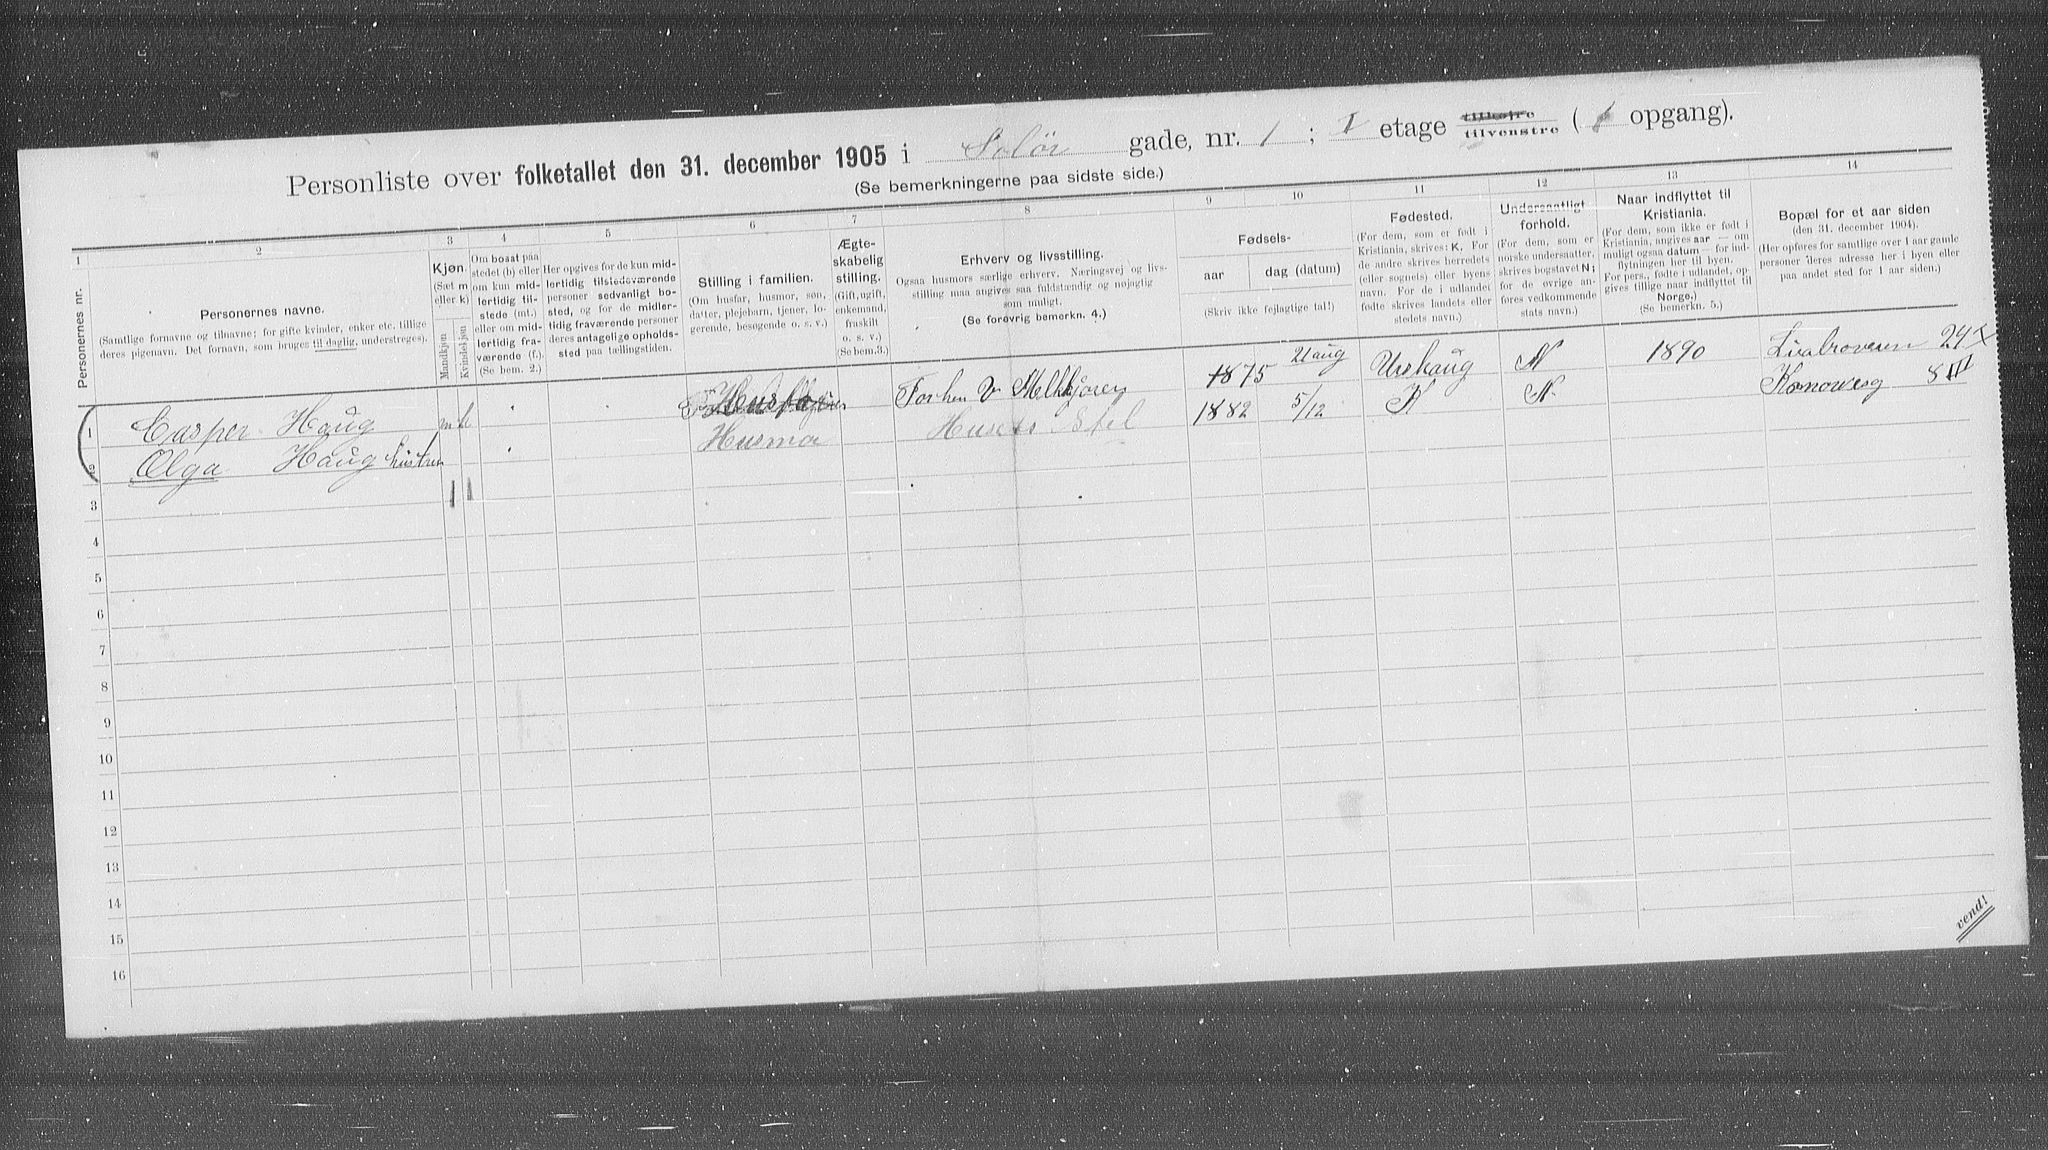 Personliste over folketallet den 31. december 1905 i Solör gade, nr. 1; I etage tilhøjre tilvenstre ( opgang).
(Se bemerkningerne paa sidste side.)
1 2 3 4 5 6 7 8 9 10 11 12 13 14
Personernes nr.
Personernes navne.
(Samtlige fornavne og tilnavne; for gifte kvinder, enker etc. tillige
deres pigenavn. Det fornavn, som bruges til daglig, understreges).
Kjøn.
(Sæt m
eller k)
Mandkjøn
Kvindekjøn
Om bosat paa
stedet (b) eller
om kun mid-
lertidig til-
stede (mt.)
eller om mid-
lertidig fra-
værende (f.).
(Se bem. 2.)
Her opgives for de kun mid-
lertidig tilstedeværende
personer sedvanligt bo-
sted, og for de midler-
tidig fraværende personer
deres antagelige opholds-
sted paa tællingstiden.
Stilling i familien.
(Om husfar, husmor, søn,
datter, plejebarn, tjener, lo-
gerende, besøgende o. s. v.)
Ægte-
skabelig
stilling.
(Gift, ugift,
enkemand,
fraskilt
o. s. v.)
(Se bem.3.)
Erhverv og livsstilling.
Ogsaa husmors særlige erhverv. Næringsvej og livs-
stilling maa angives saa fuldstændig og nøjagtig
som muligt.
(Se forøvrig bemerkn. 4.)
Fødsels-
aar dag (datum)
(Skriv ikke fejlagtige tal!)
Fødested.
(For dem, som er født i
Kristiania, skrives: K. For
de andre skrives herredets
(eller sognets) eller byens
navn. For de i udlandet
fødte skrives landets eller
stedets navn.)
Undersaatligt
forhold.
(For dem, som er
norske undersaatter,
skrives bogstavet N;
for de øvrige an-
føres vedkommende
stats navn.)
Naar indflyttet til
Kristiania.
(For dem, som ikke er født i
Kristiania, angives aar — om
muligt ogsaa datum — for ind-
flytningen her til byen.
For pers., fødte i udlandet, op-
gives tillige naar indflyttet til
Norge.)
(Se bemerkn. 5.)
Bopæl for et aar siden
(den 31. december 1904).
(Her opføres for samtlige over 1 aar gamle
personer deres adresse her i byen eller
paa andet sted for 1 aar siden.)
1 Casper Haug m Husfar Forhen V Melkkjører 1875 21 aug Urskaug N 1890 24
2 Olga Haug hustru k Husmor Husets Stel 1882 5/12 K N Konowsg 8 III
3
4
5
6
7
8
9
10
11
12
13
14
15
16
vend!